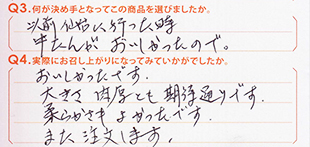 Q3.何が決め手となってこの商品を選びましたか。
以前仙台に行った時
牛たんが おいしかったので。
Q4.実際にお召し上がりになってみていかがでしたか。
おいしかったです.
大きさ 肉厚とも期待通りです.
柔らかさもよかったです.
また注文します。